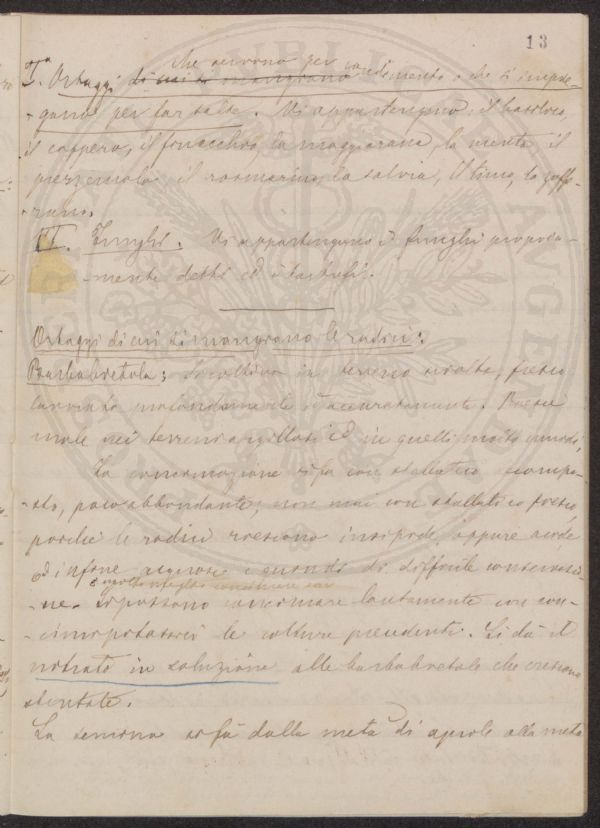 13
che servono per
V.a Ortaggi di cui si mangiano condimento o che si impie-
- gano per far salse. Vi appartengono: il basilico,
il cappero, il finocchio, la maggiorana, la menta il
prezzemolo il rosmarino, la salvia, il timo, lo zaffe-
- rano.
VI. Funghi. Vi appartengono i funghi propria-
- mente detti ed i tartufi.
Ortaggi di cui si mangiano le radici:
Barbabietola: Si coltiva in terreno sciolto, fresco
lavorato profondamente ed accuratamente. Riesce
male nei terreni argillosi ed in quelli molto umidi,
La concimazione si fa con stallatico scompo-
- sto, poco abbondante; non mai con stallatico fresco,
poiché le radici crescono insipide, oppure acide
od infine acquose e quindi di difficile conservazio-
è molto meglio concimare con
- ne. Si possono concimare lautamente con con-
- cimi potassici le colture precedenti. Si dà il
nitrato in soluzione alle barbabietole che crescono
stentate.
La semina si fa dalla metà di aprile alla metà